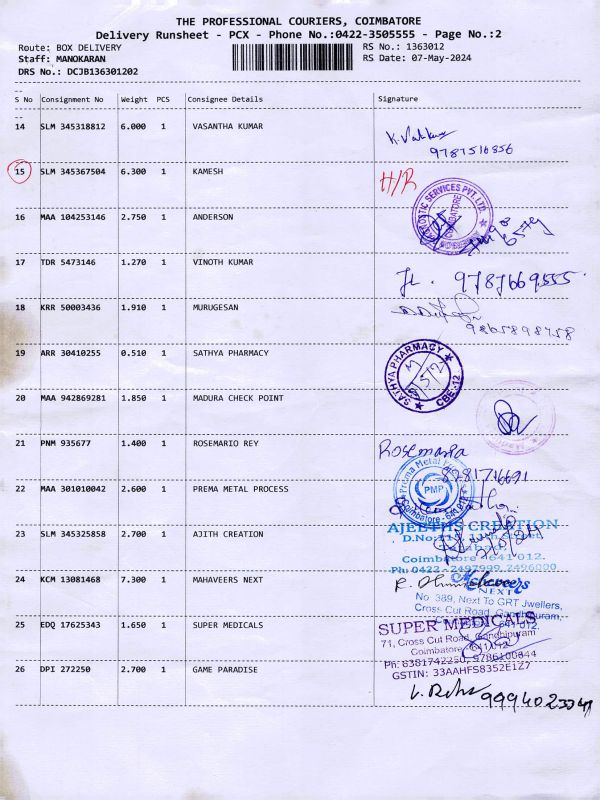 THE PROFESSIONAL COURIERS, COIMBATORE
Delivery Runsheet - PCX - Phone No.:0422-3505555 - Page No.:2
Route: BOX DELIVERY RS No.: 1363012
Staff: MANOKARAN RS Date: 07-May-2024
DRS No.: DCJB136301202
S No Consignment No Weight PCS Consignee Details Signature
14 SLM 345318812 6.000 1 VASANTHA KUMAR
9787516856
15 SLM 345367504 6.300 1 KAMESH H/R
16 MAA 104253146 2.750 1 ANDERSON
COIMBATORE
17 TDR 5473146 1.270 1 VINOTH KUMAR
9787669555
18 KRR 50003436 1.910 1 MURUGESAN
9865898758
19 ARR 30410255 0.510 1 SATHYA PHARMACY
SATHYA PHARMACY
CBE-12
20 MAA 942869281 1.850 1 MADURA CHECK POINT
21 PNM 935677 1.400 1 ROSEMARIO REY
22 MAA 301010042 2.600 1 PREMA METAL PROCESS
Prema Metal
PMP
Coimbatore - 641 012
23 SLM 345325858 2.700 1 AJITH CREATION
AJEETHS CREATION
Coimbatore 641 012.
Ph: 0422 - 2497999, 2496000
24 KCM 13081468 7.300 1 MAHAVEERS NEXT
Mahaveers
NEXT
No. 389, Next To GRT Jwellers,
Cross Cut Road, Gandhipuram,
25 EDQ 17625343 1.650 1 SUPER MEDICALS
SUPER MEDICALS
71, Cross Cut Road, Gandhipuram
Coimbatore - 641 012
Ph: 6381742250, 9786100644
GSTIN: 33AAHFS8352E1Z7
26 DPI 272250 2.700 1 GAME PARADISE